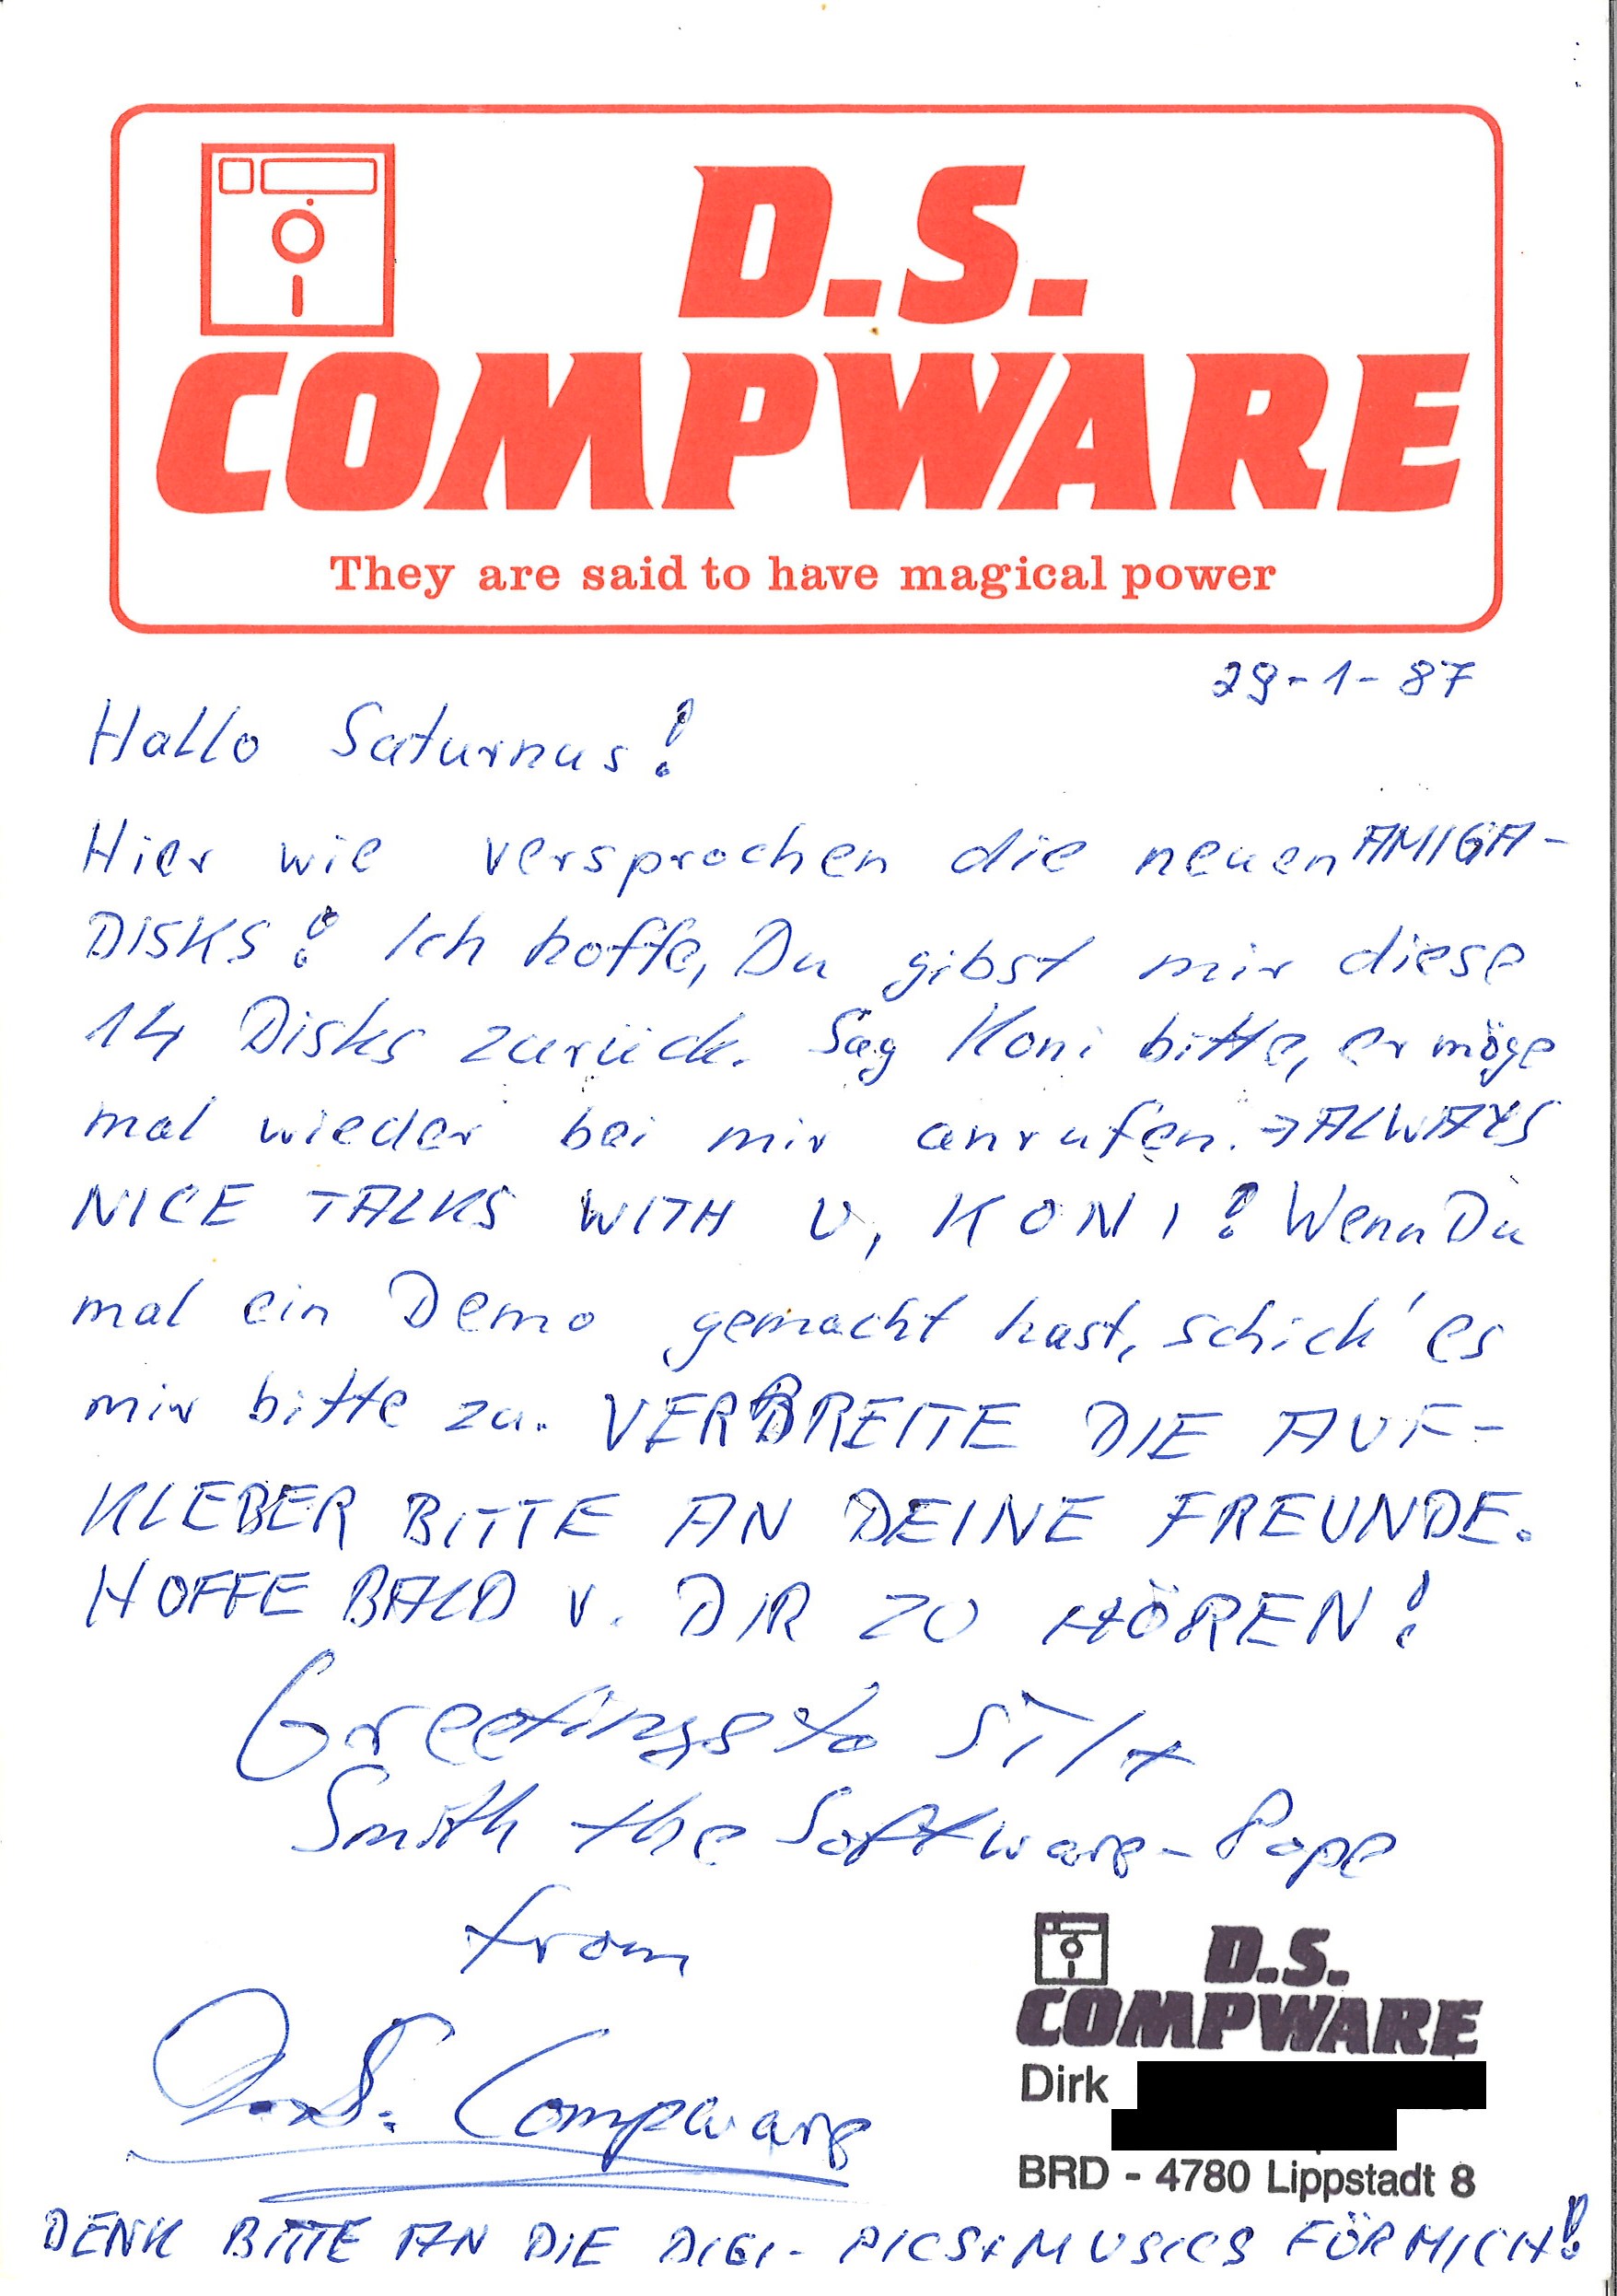 D.S.
COMPWARE
They are said to have magical power
29-1-87
Hallo Saturnus!
Hier wie versprochen die neuen AMIGA-
DISKS! Ich hoffe, Du gibst mir diese
14 Disks zurück. Sag Koni bitte, er möge
mal wieder bei mir anrufen. → ALWAYS
NICE TALKS WITH U, KONI! Wenn Du
mal ein Demo gemacht hast, schick' es
mir bitte zu. VERBREITE DIE AUF-
KLEBER BITTE AN DEINE FREUNDE.
HOFFE BALD v. DIR ZU HÖREN!
Greetings to STI +
Smith the Software-Pope
from
D.S. Compware
D.S.
COMPWARE
Dirk
BRD - 4780 Lippstadt 8
DENK BITTE AN DIE DIGI-PICS+MUSICS FÖR MICH!